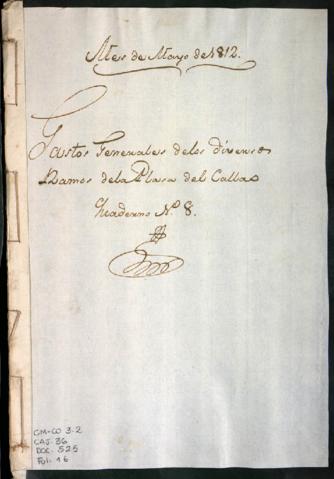 Mes de Mayo de 1812.
Gastos Generales delos diversos
Ramos dela Plasa del Callao
Quaderno N.º 8.
GM-CO 3.2
CAJ. 36
DOC. 525
Fol. 16